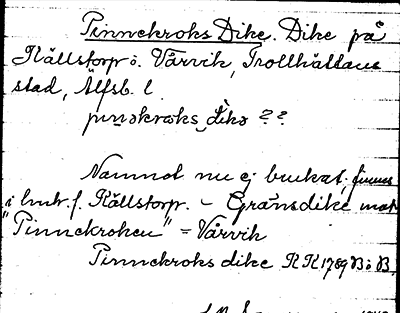 Pinnekroks Dike. Dike på
Källstorp i. Vårvik, Trollhättans
stad, Älfsb. l.
dike ??
Namnet nu ej brukat, finnes
i lmtr. f. Källstorp. – Gränsdike mot
"Pinnekroken" = Vårvik
Pinnekroks dike RR 1789 B: B.